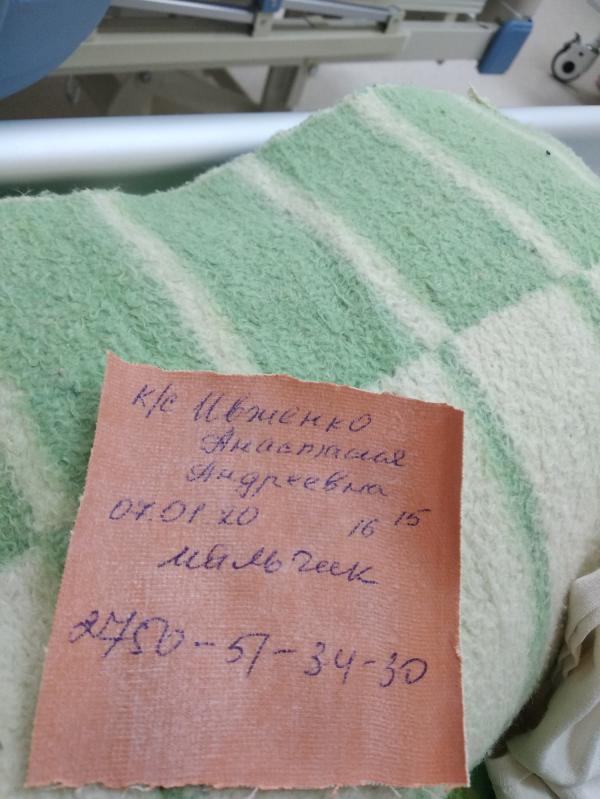 к/с Ивженко
Анастасия
Андреевна
07.01.20 16 15
мальчик
2750-51-34-30